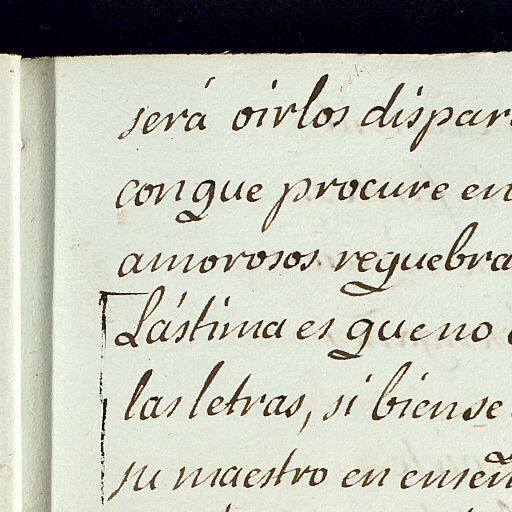 será oirlos dispar
con que procure en
amorosos requebra
Lástima es que no
las letras, si bien se
su maestro en enseñ